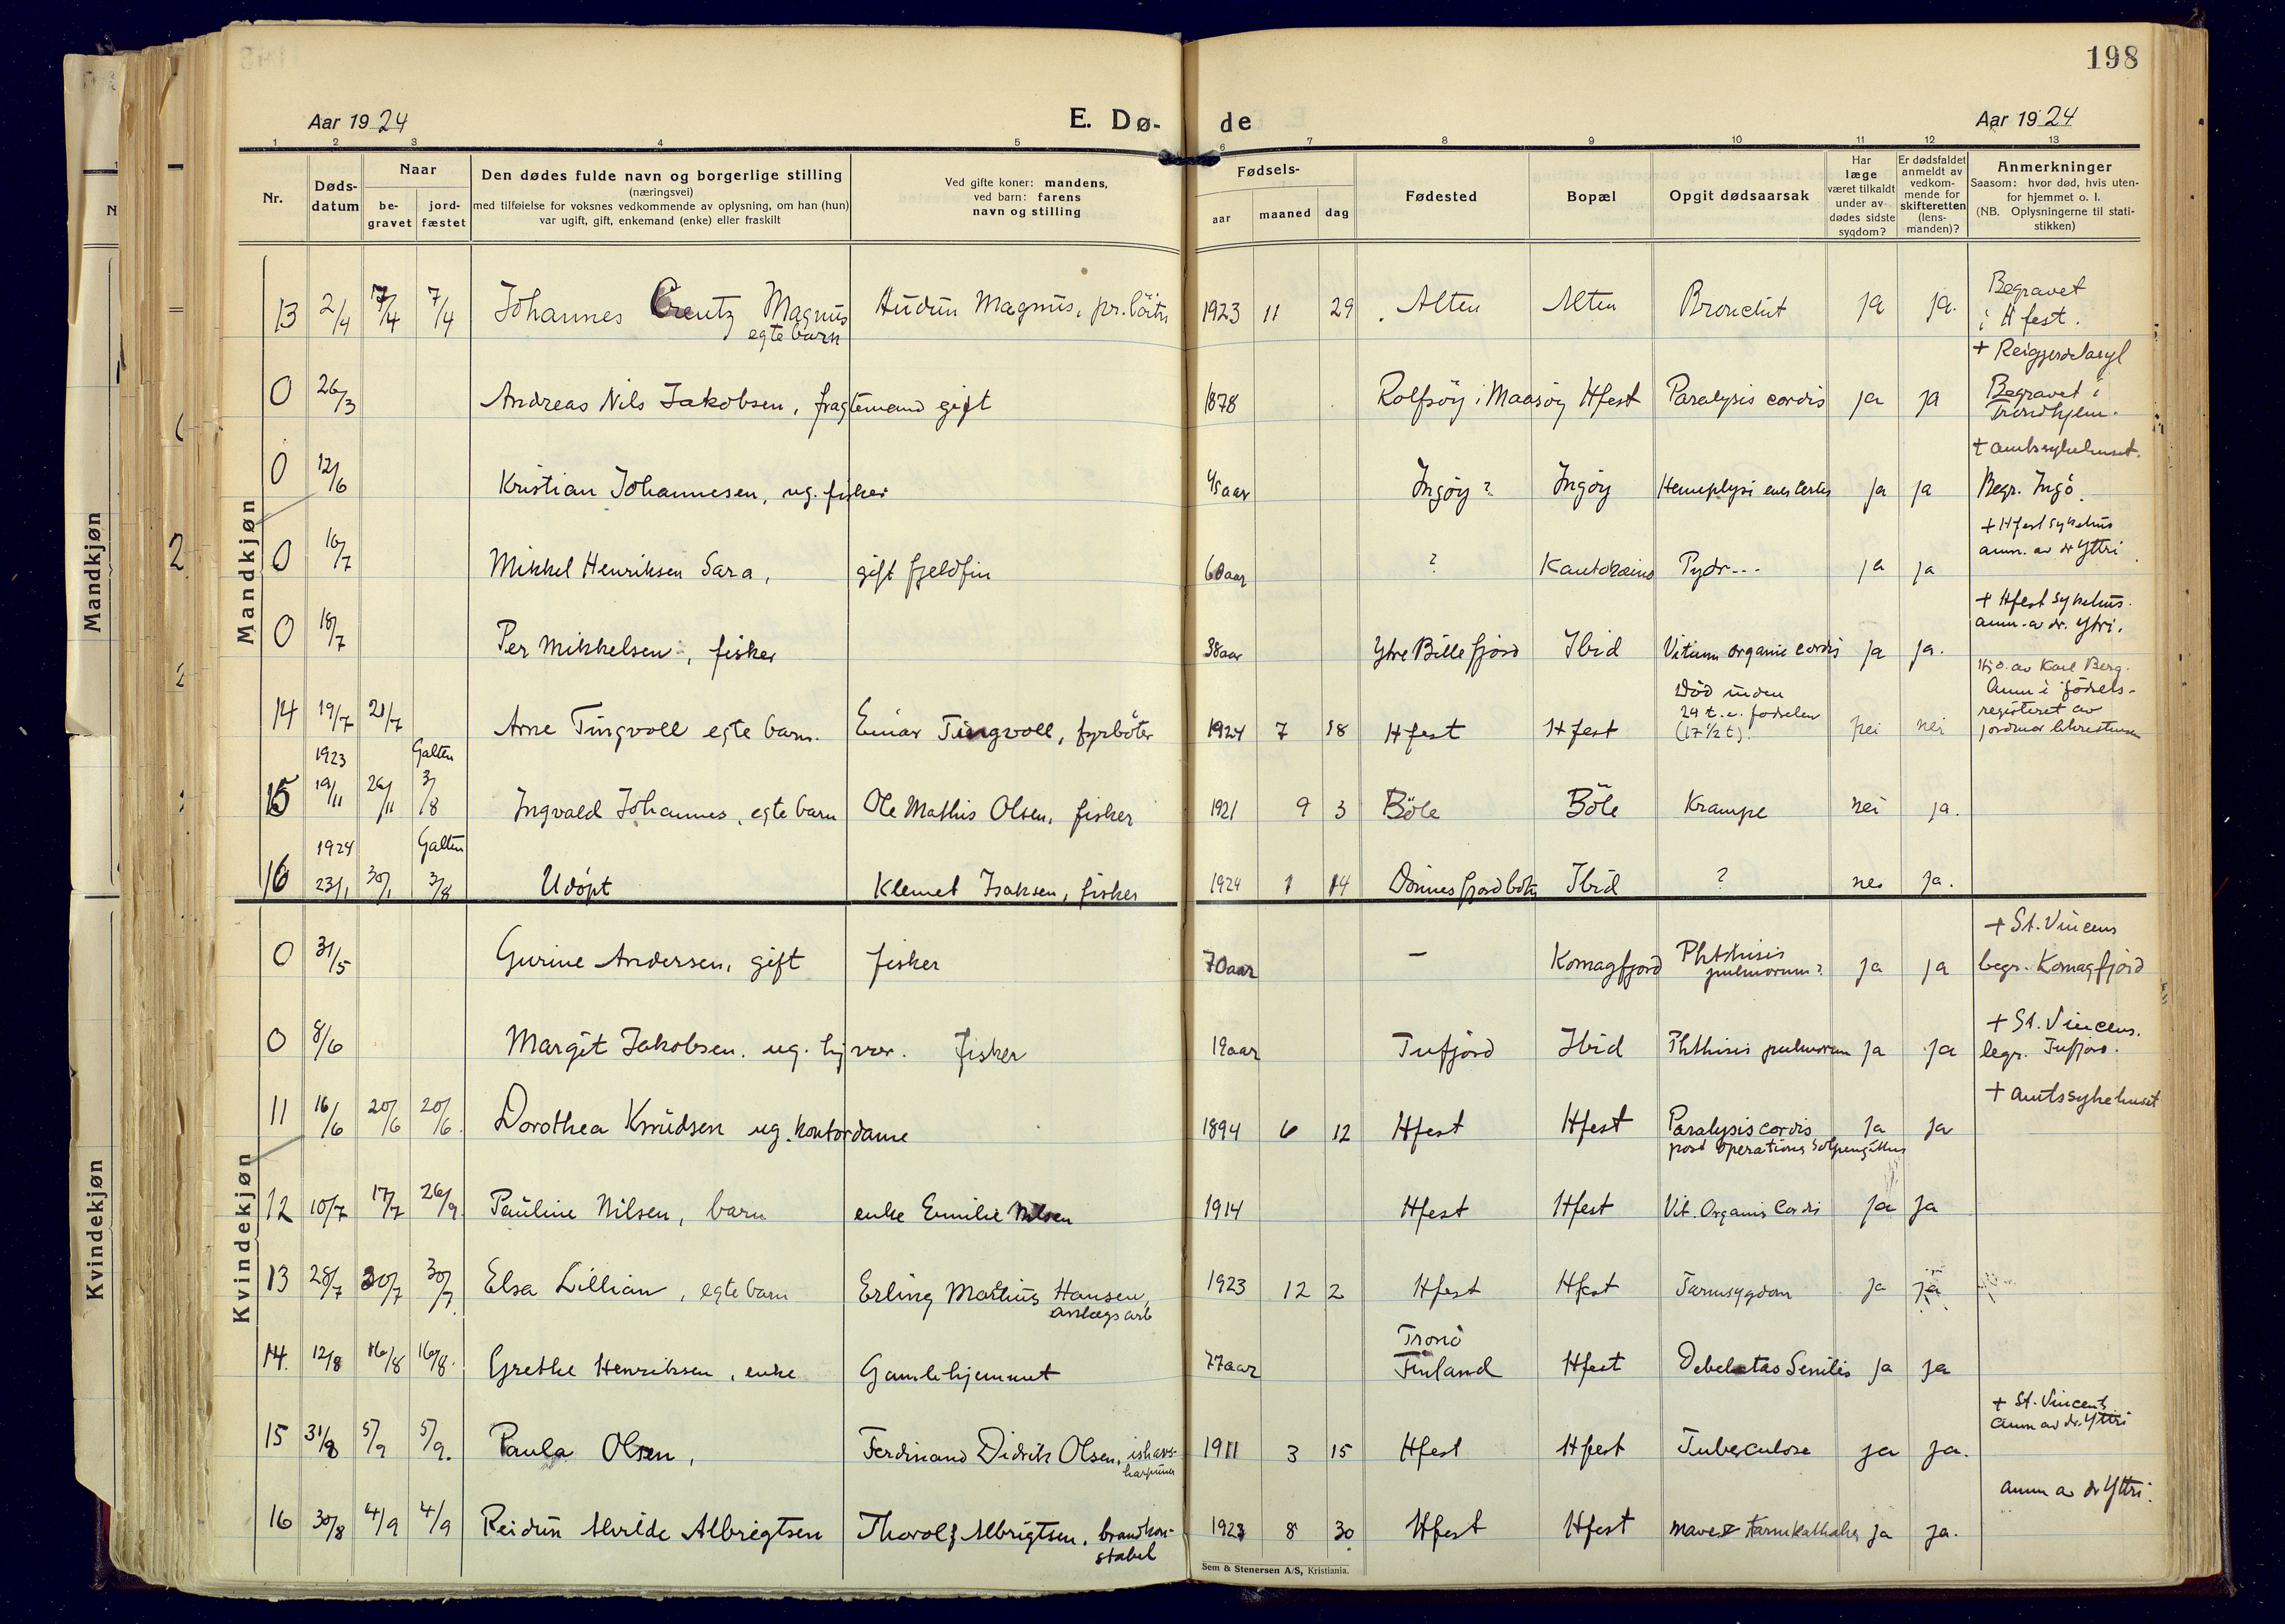 198
Aar 1924
E. Dø-
de
Aar 1924
1 2 3 4 5 6 7 8 9 10 11 12 13
Nr.
Døds-
datum
Naar
be-
gravet
jord-
fæstet
Den dødes fulde navn og borgerlige stilling
(næringsvei)
med tilføielse for voksnes vedkommende av oplysning, om han (hun)
var ugift, gift, enkemand (enke) eller fraskilt
Ved gifte koner: mandens,
ved barn: farens
navn og stilling
Fødsels-
aar maaned dag
Fødested
Bopæl
Opgit dødsaarsak
Har
læge
været tilkaldt
under av-
dødes sidste
sygdom?
Er dødsfaldet
anmeldt av
vedkom-
mende for
skifteretten
(lens-
manden)?
Anmerkninger
Saasom: hvor død, hvis uten-
for hjemmet o. l.
(NB. Oplysningerne til stati-
stikken)
Mandkjøn
Mandkjøn
13 2/4 7/4 7/4 Johannes Creutz Magnus Audun Magnus, 1923 11 29 Alten Alten Bronchit ja ja. Begravet
egte barn i Hfest.
0 26/3 Andreas Nils Jakobsen, fragtemand gift 1878 Rolfsöy i Maasöy Hfest Paralysis cordis ja ja Begravet i
Trondhjem.
+ amtssykehuset.
0 12/6 Kristian Johannesen, ug. fisker 45 aar Ingöy? Ingöy ja ja Begr. Ingö.
+ Hfest sykehus
anm. av dr Yttri
0 16/7 Mikkel Henriksen Sara, gift fjeldfin 60 aar ? Kautokeino Pydr--- ja ja
+ Hfest sykehus.
anm. av dr. Ytri.
0 18/7 Per Mikkelsen, fisker 38 aar Ytre Billefjord Ibid Vitium organic cordis ja ja.
Hj.d. av Karl Berg.
Död inden Anm i födsels-
24 t. e. fødselen registeret av
14 19/7 21/7 Arne Tingvoll egte barn. Einar Tingvoll, fyrböter 1924 7 18 Hfest Hfest (17 1/2 t) nei nei jordmor
1923 Galten
15 19/11 26/11 3/8 Ingvald Johannes, egte barn Ole Mathis Olsen, fisker 1921 9 3 Böle Böle Krampe nei ja.
1924 Galten
16 23/1 30/1 3/8 Udöpt Klemet Isaksen, fisker 1924 1 14 Dönnesfjordbotn Ibid ? nei ja.
Kvindekjøn
Kvindekjøn
+ St. Vincens
0 31/5 Gurine Andersen, gift fisker 70 aar — Komagfjord Phthisis ja ja begr. Komagfjord
pulmorum?
+ St. Vincens.
0 8/6 Margit Jakobsen. ug. hj vær. fisker 19 aar Tufjord Ibid Phthisis pulmorum ja ja begr. Tufjord.
+ amtssykehuset
11 16/6 20/6 20/6 Dorothea Knudsen ug. kontordame 1894 6 12 Hfest Hfest Paralysis cordis ja ja
post operationis
12 10/7 17/7 26/9 Pauline Nilsen, barn enke Emilie Nilsen 1914 Hfest Hfest Vit. Organis Cordis ja ja
13 28/7 30/7 30/7 Elsa Lillian, egte barn Erling Martius Hansen, 1923 12 2 Hfest Hfest Tarmsygdom ja ja
anlægsarb
Tronö
14. 12/8 16/8 16/8. Grethe Henriksen, enke Gamlehjemmet 77 aar Finland Hfest Debelatas Senilis ja ja
+ St. Vincent
anm av dr. Yttri
15 31/8 5/9 5/9. Paula Olsen, Ferdinand Didrik Olsen, ishavs- 1911 3 15 Hfest Hfest Tuberculose ja ja.
harpuner
anm av dr Yttri.
16 30/8 4/9 4/9 Reidun Alvilde Albrigtsen Thorolf Albrigtsen, brandkon- 1923 8 30 Hfest Hfest ja ja.
stabel
Sem & Stenersen A/S, Kristiania.